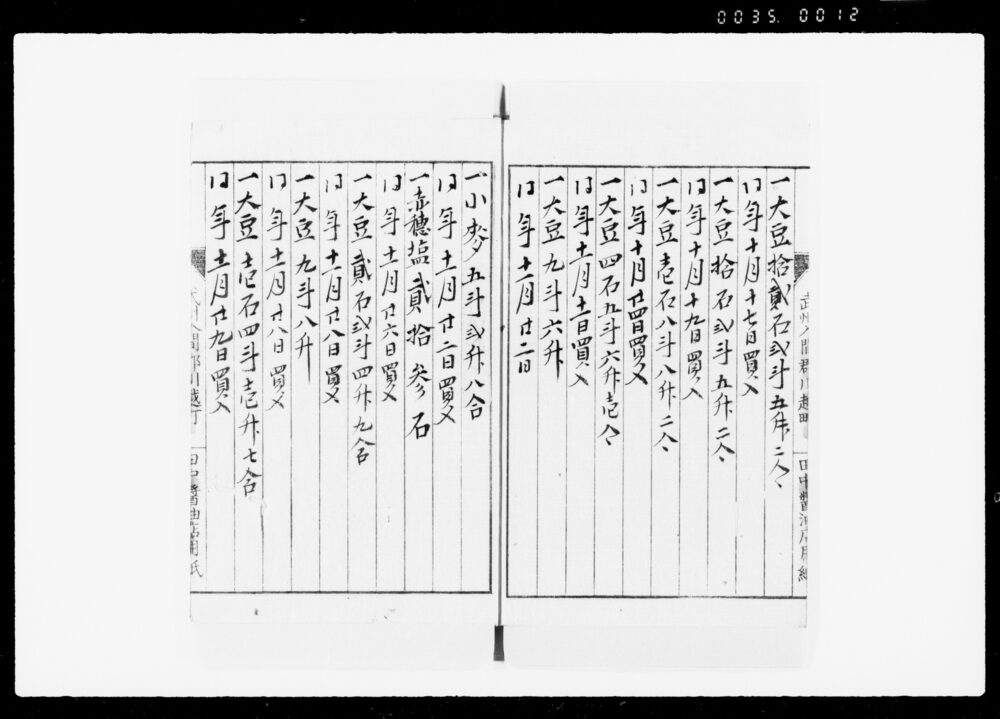 0035. 0012
武州入間郡川越町 田中醤油店用紙
一大豆拾貳石弐斗五升二合
同年十月十七日買入
一大豆拾石弐斗五升二合
同年十月十九日買入
一大豆壱石八斗八升二合
同年十月廿四日買入
一大豆四石五斗六升壱合
同年十一月十一日買入
一大豆九斗六升
同年十一月廿二日
一小麥五斗弐升八合
同年十一月廿二日買入
一赤穂塩貳拾参石
同年十一月廿六日買入
一大豆貳石弐斗四升九合
同年十一月廿八日買入
一大豆九斗八升
同年十一月廿八日買入
一大豆壱石四斗壱升七合
同年十一月廿九日買入
武州入間郡川越町 田中醤油店用紙